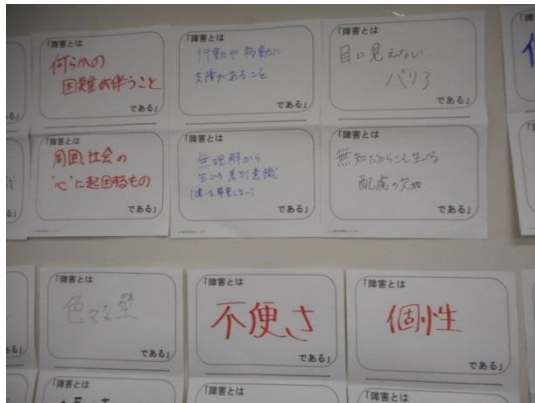 「障害とは
何らかの
困難が伴うこと
である」
「障害とは
行動や移動に
支障があること
である」
「障害とは
目に見えない
バリア
である」
「障害とは
周囲、社会の
"心"に起因するもの
である」
「障害とは
無理解から
生じる差別意識
である」
「障害とは
無知だからこそ生じる
配慮の欠如
である」
「障害とは
色々な壁
である」
「障害とは
不便さ
である」
「障害とは
個性
である」
「障害とは
「障害とは
「障害とは